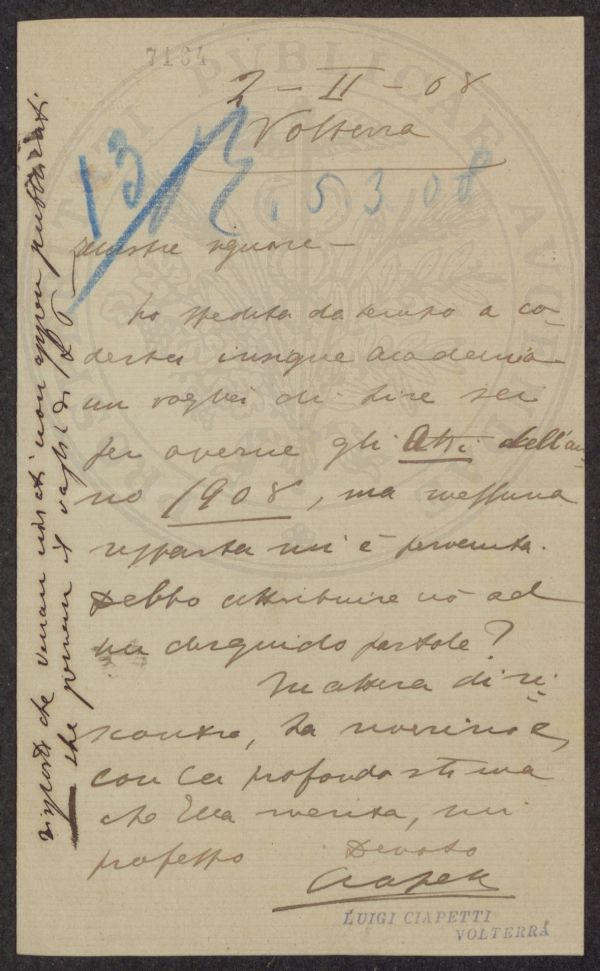 7184
2 - II - 08
Volterra
13
5.3.08
Illustre signore -
ho spedito da tempo a co-
desta insigne Academia
un vaglia di lire sei
per averne gli Atti dell'an-
no 1908, ma nessuna
risposta mi è pervenuta.
Debbo attribuire ciò ad
un disguido postale?
In attesa di ri-
scontro, La riverisco e,
con la profonda stima
che Ella merita, mi
professo Devoto
Ciapetti
LUIGI CIAPETTI
VOLTERRA
risposto che verran inviati non appena pubblicati
che pervenne il vaglia di £ 6
PROSPERITATI PUBLICAE AUGENDAE